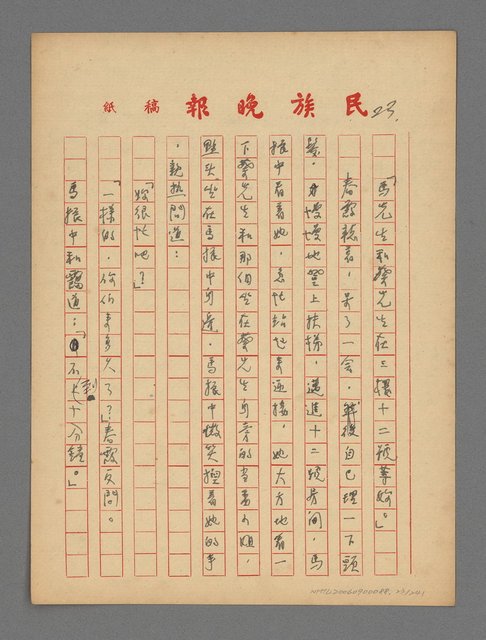 民族晚報 稿紙
23.
「馬先生和蔡先生在三樓十二號等妳。」
春霞聽着,呆了一會,然後自己理一下頭
髮,才慢慢地登上扶梯,邁進十二號房間,馬
振中看着她,急忙站起來迎接,她大方地看一
下蔡先生和那個坐在蔡先生身旁的小姐,
點頭坐在馬振中身邊,馬振中微笑握着她的手
,親熱問道:
「妳很忙吧?」
「一樣的,你們來多久了?」春霞反問。
馬振中和靄道:「剛不上十分鐘。」